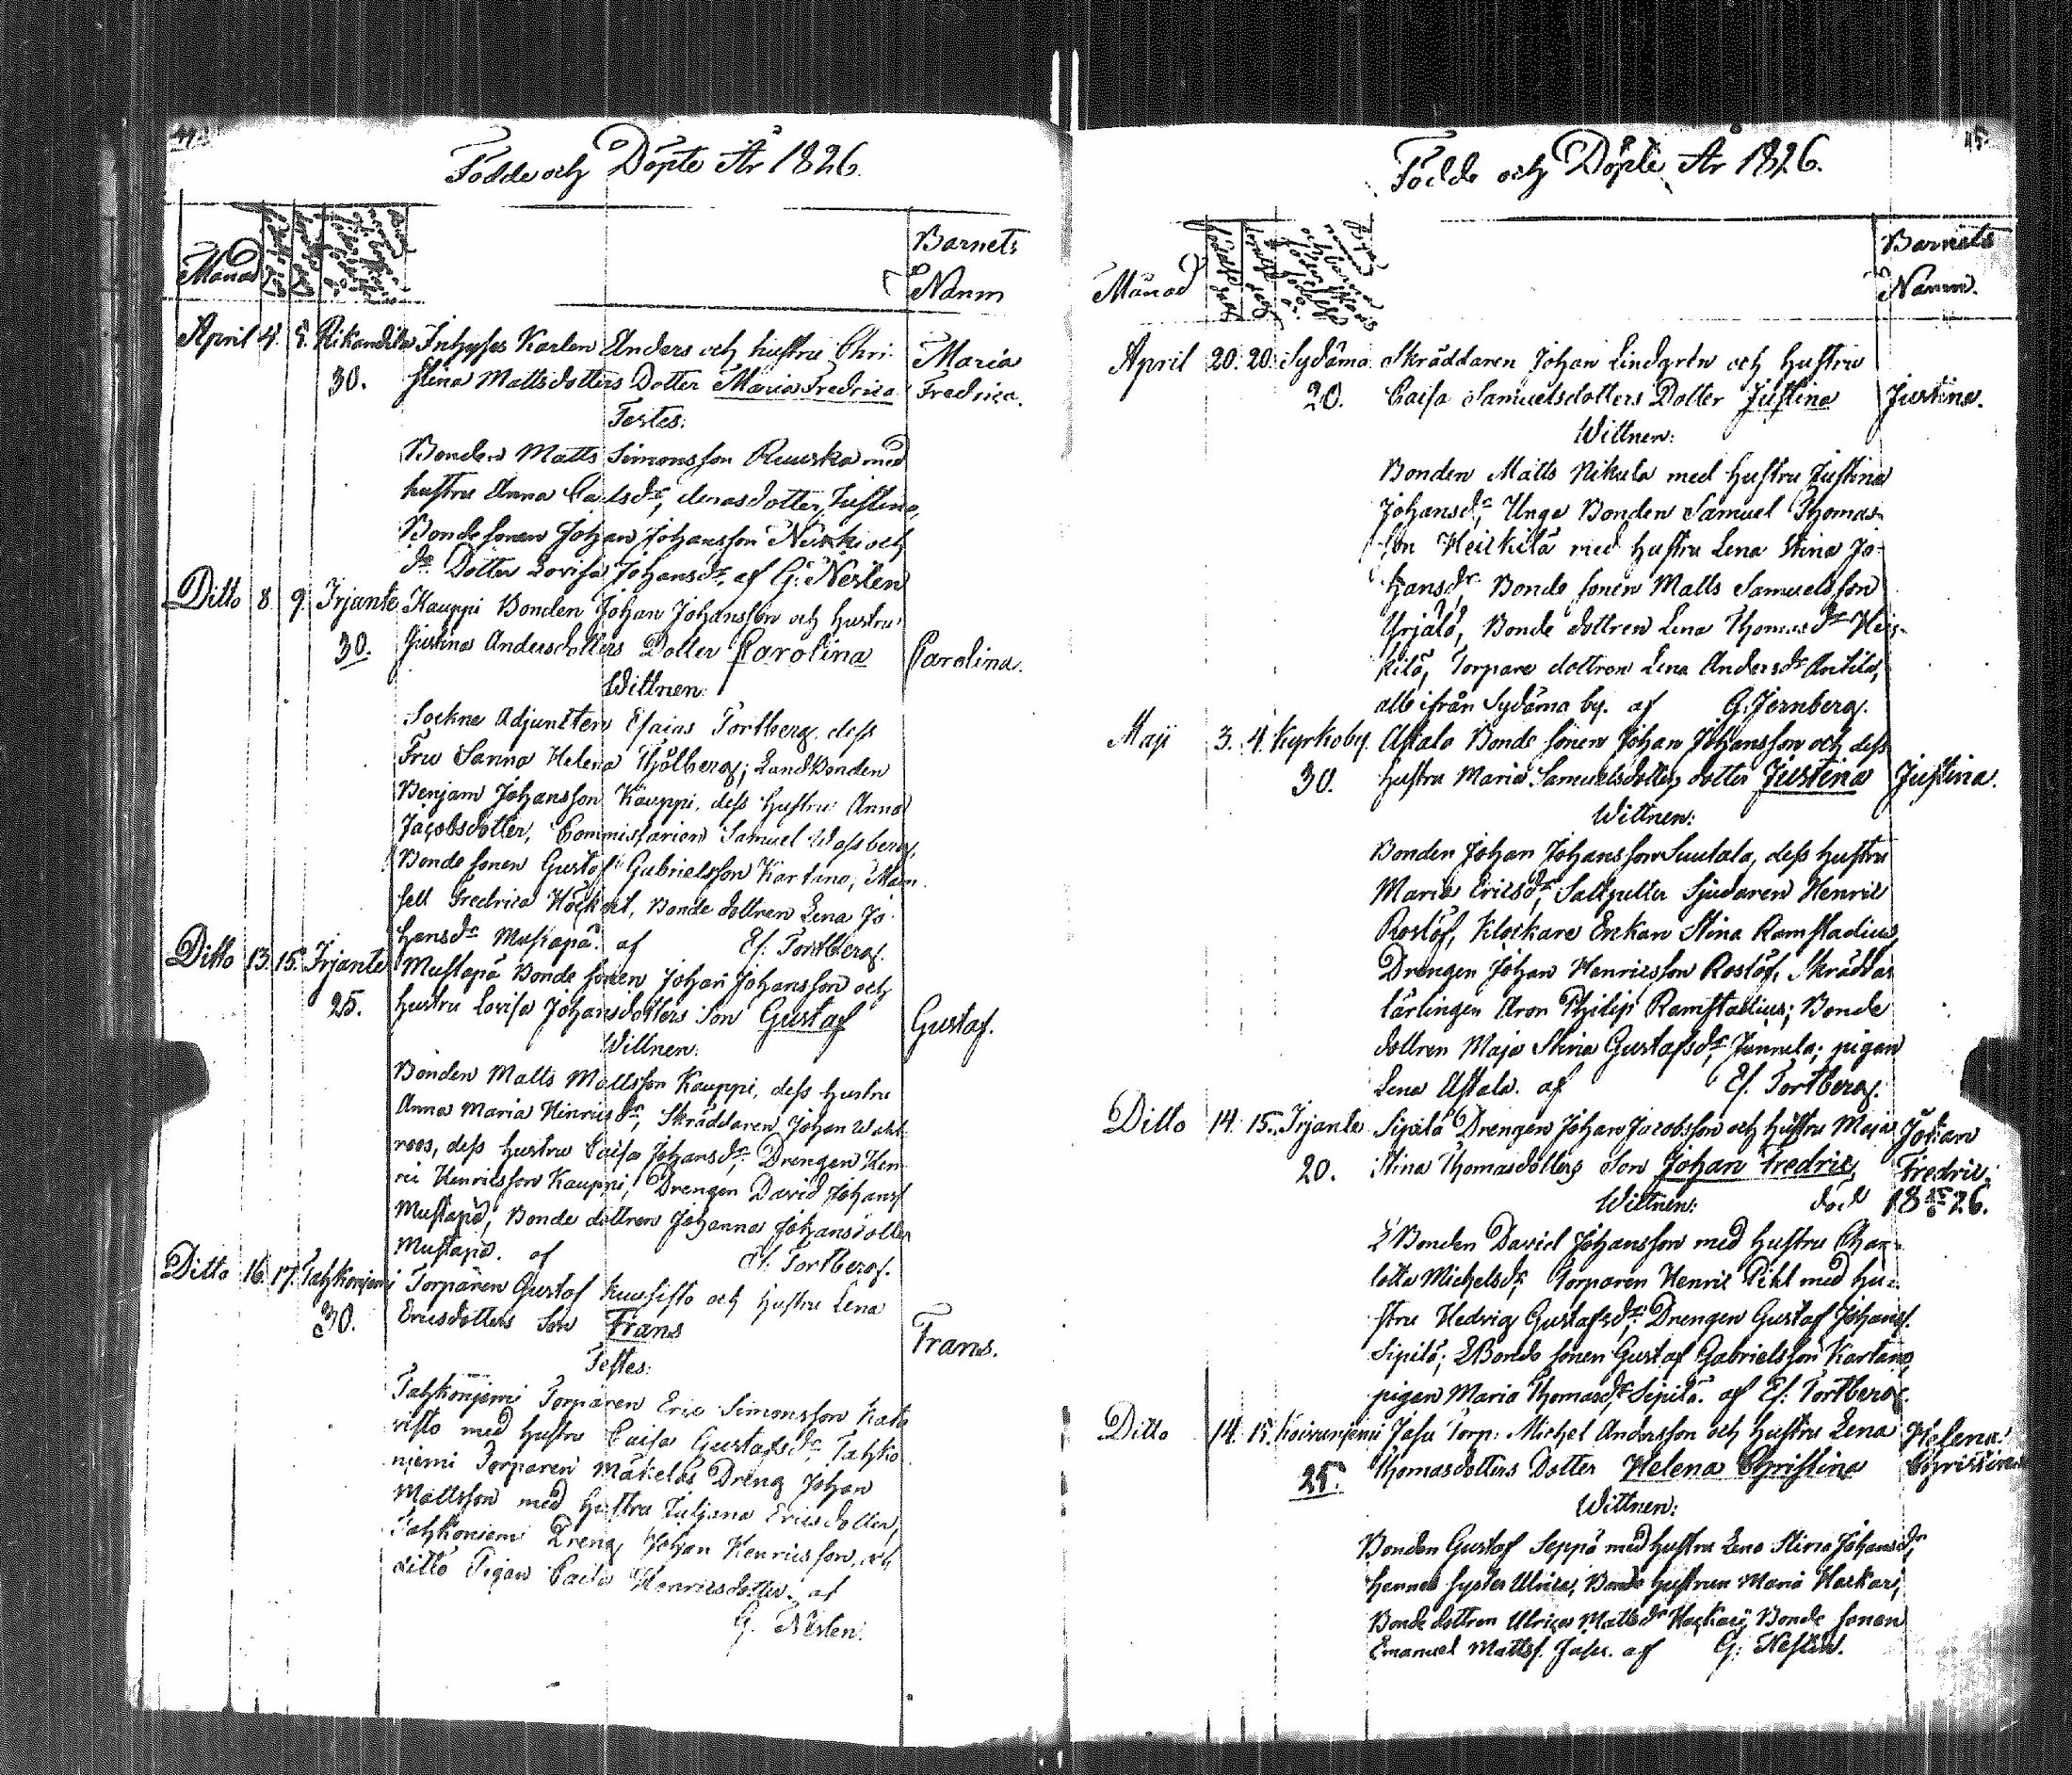 44.
Födde och Döpte År 1826.
Månad
Barnets
Namn
April 4. 5. Inhyses Karlen Anders och hustru Chri-
stina Mattsdotters Dotter Maria Fredrica
30.
Maria
Fredrica.
Testes:
Bonden Matts Simonsson Ruuska med
hustru Anna Carlsdr, denas dotter Justina,
Bondesonen Johan Johansson och
do Dotter Lovisa Johansdr. af G. Neslen
Ditto 8. 9. Irjante Kauppi Bonden Johan Johansson och hustru
30. Justina Andersdotters Dotter Carolina
Carolina.
Wittnen:
Sockne Adjuncten Esaias Tortberg dess
Fru Sanna Helena; Landbonden
Benjam Johansson Kauppi, dess hustru Anna
Jacobsdotter, Commissarien Samuel
Bonde sonen Gustaf Gabrielsson Kartano, Mam-
sell Fredrica Höckert, Bonde dottren Lena Jo-
hansdr Mustapä. af Es. Tortberg.
Ditto 13. 15. Irjante Mustapä Bonde sonen Johan Johansson och
25. hustru Lovisa Johansdotters Son Gustaf
Gustaf.
Wittnen:
Bonden Matts Mattsson Kauppi, dess hustru
Anna Maria Hinricsdr, Skräddaren Johan Wahl-
roos, dess hustru Caisa Johansdr, Drengen Hen-
ric Henricsson Kauppi, Drengen David Johanss.
Mustapä, Bonde dottren Johanna Johansdotter
Mustapä. af Es. Tortberg.
Ditto 16. 17. Tahkonjemi Torparen Gustaf Kuusisto och hustru Lena
30. Ericsdotters Son Frans
Frans.
Testes:
Tahkonjemi Torparen Eric Simonsson Kata-
risto med hustru Caisa Gustafsdr, Tahko-
njemi Torparen Mäkeläs Dreng Johan
Mattsson med hustru Juljana Ericsdotter,
Tahkoniemi Dreng Johan Henricsson, och
ditto Pigan Caisa Henricsdotter. af
G. Neslen.
45.
Födde och Döpte År 1826.
Månad
Barnets
Namn.
April 20. 20. Sydämä Skräddaren Johan Lindgrén och Hustru
20. Caisa Samuelsdotters Dotter Justina
Justina.
Wittnen:
Bonden Matts Nikula med hustru Justina
Johansdr, Unge Bonden Samuel Thomas-
son Heickilä med hustru Lena Stina Jo-
hansdr. Bonde sonen Matts Samuelsson
Yrjälä, Bonde dottren Lena Thomasdr Hei-
kilä, Torpare dottren Lena Andersdr Antila,
alle ifrån Sydämä by. af G. Jernberg.
Maji 3. 4. Kyrkoby. Astala Bonde sonen Johan Johansson och dess
30. hustru Maria Samuelsdotters dotter Justina
Justina.
Wittnen:
Bonden Johan Johansson Suutala, dess hustru
Maria Ericsdr, Saltpetter Sjudaren Henric
Roslöf, Klockare Enkan Stina Ramstadius,
Drengen Johan Henricsson Roslöf, Skräddar
lärlingen Aron Philip Ramstadius; Bonde
dottren Maja Stina Gustafsdr Junnila; pigan
Lena Astala. af Es. Tortberg.
Ditto 14. 15. Irjante Sipilä Drengen Johan Jacobsson och hustru Maja
20. Stina Thomasdotters Son Johan Fredric
Johan
Fredric.
Wittnen: död 18 26.
Bonden David Johansson med hustru Char-
lotta Michelsdr, Torparen Henric Pikl med hu-
stru Hedvig Gustafsdr: Drengen Gustaf Johanss.
Sipilä; Bonde sonen Gustaf Gabrielsson Kartano,
pigan Maria Thomasdr Sipilä. af Es. Tortberg.
Ditto 14. 15. Koivunjemi Jasu Torp: Michel Andersson och hustru Lena
25. Thomasdotters Dotter Helena Christina
Helena
Christina
Wittnen:
Bonden Gustaf Seppä med hustru Lena Stina Johansdr,
hennes syster Ulrica, Bonde hustrun Maria Heckari,
Bonde dottren Ulrica Mattsdr Heckari, Bonde sonen
Emanuel Mattss. Jasu. af G: Neslen.